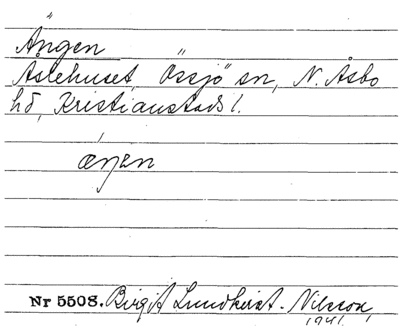 Ängen
Åslehuset, Össjö sn, N. Åsbo
hd, Kristianstads l.
æŋen
Nr 5508. Birgit Lundkvist-Nilsson,
1941.